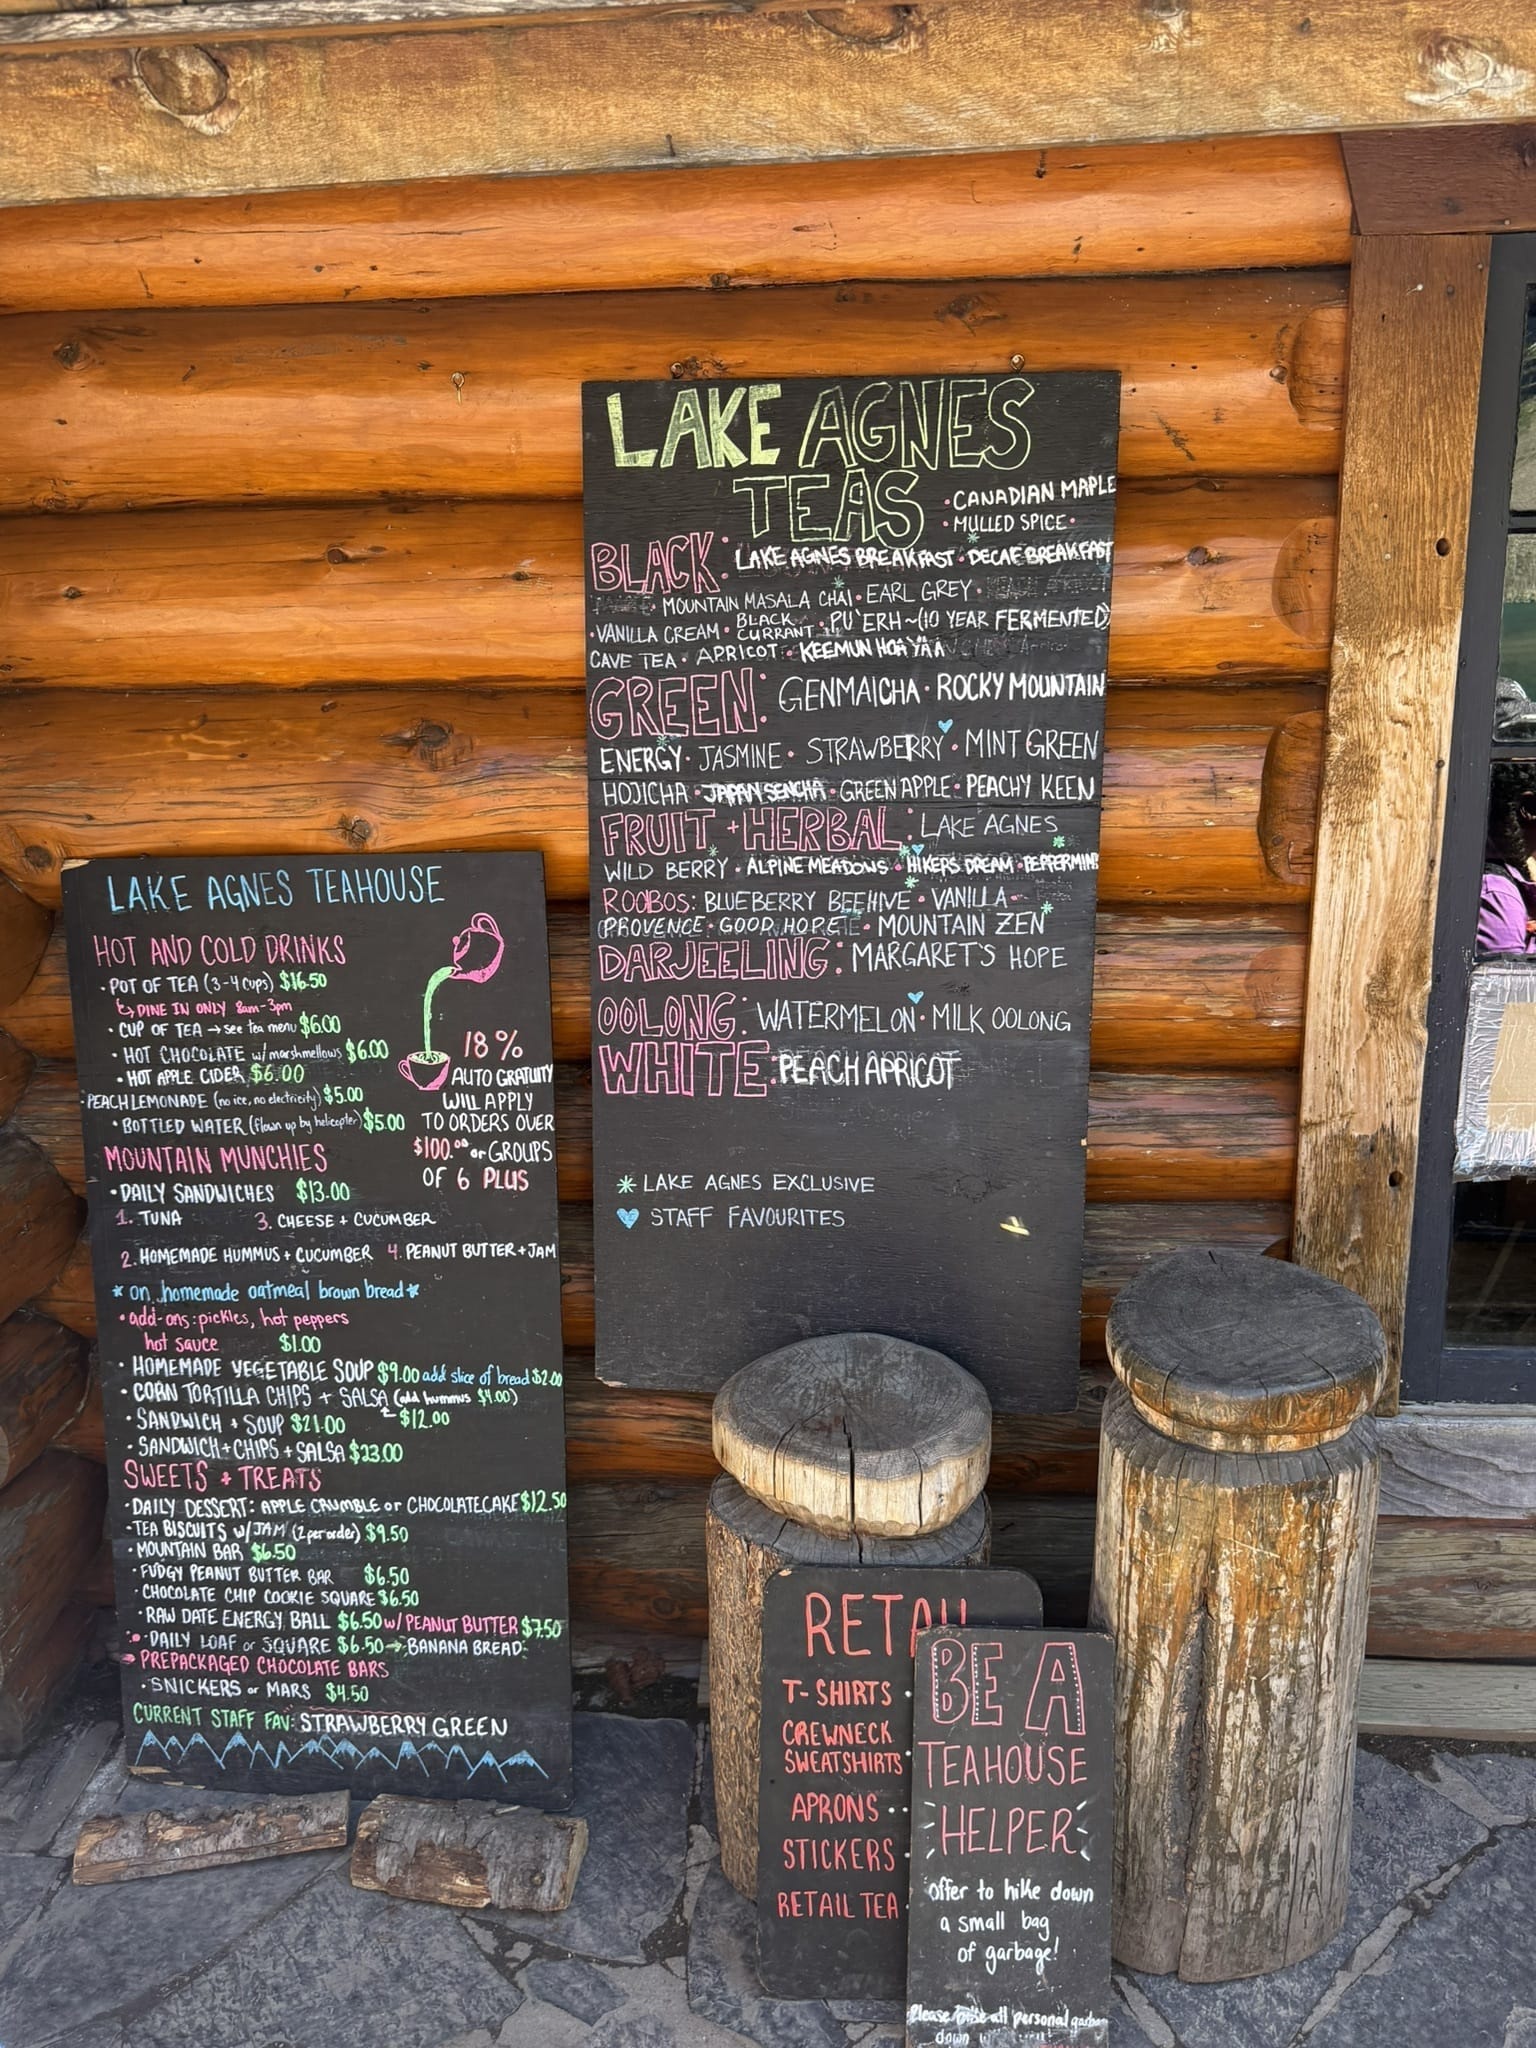 LAKE AGNES TEAHOUSE
HOT AND COLD DRINKS
• POT OF TEA (3-4 cups) $16.50
↳ DINE IN ONLY 8am-3pm
• CUP OF TEA → see tea menu $6.00
• HOT CHOCOLATE w/ marshmellows $6.00
• HOT APPLE CIDER $6.00
• PEACH LEMONADE (no ice, no electricity) $5.00
• BOTTLED WATER (flown up by helicopter) $5.00
18%
AUTO GRATUITY
WILL APPLY
TO ORDERS OVER
$100.00 or GROUPS
OF 6 PLUS
MOUNTAIN MUNCHIES
• DAILY SANDWICHES $13.00
1. TUNA 3. CHEESE + CUCUMBER
2. HOMEMADE HUMMUS + CUCUMBER 4. PEANUT BUTTER + JAM
* on homemade oatmeal brown bread *
• add-ons: pickles, hot peppers
hot sauce $1.00
• HOMEMADE VEGETABLE SOUP $9.00 add slice of bread $2.00
• CORN TORTILLA CHIPS + SALSA (add hummus $4.00)
$12.00
• SANDWICH + SOUP $21.00
• SANDWICH + CHIPS + SALSA $23.00
SWEETS + TREATS
• DAILY DESSERT: APPLE CRUMBLE or CHOCOLATE CAKE $12.50
• TEA BISCUITS W/ JAM (2 per order) $9.50
• MOUNTAIN BAR $6.50
• FUDGY PEANUT BUTTER BAR $6.50
• CHOCOLATE CHIP COOKIE SQUARE $6.50
• RAW DATE ENERGY BALL $6.50 w/ PEANUT BUTTER $7.50
• DAILY LOAF or SQUARE $6.50 → BANANA BREAD
PREPACKAGED CHOCOLATE BARS
• SNICKERS or MARS $4.50
CURRENT STAFF FAV: STRAWBERRY GREEN
LAKE AGNES
TEAS
• CANADIAN MAPLE
• MULLED SPICE •
BLACK: LAKE AGNES BREAKFAST • DECAF BREAKFAST
• MOUNTAIN MASALA CHAI • EARL GREY •
• VANILLA CREAM • BLACK CURRANT • PU'ERH ~ (10 YEAR FERMENTED)
CAVE TEA • APRICOT • KEEMUN HOA YAA
GREEN: GENMAICHA • ROCKY MOUNTAIN
ENERGY • JASMINE • STRAWBERRY • MINT GREEN
HOJICHA • JAPAN SENCHA • GREEN APPLE • PEACHY KEEN
FRUIT + HERBAL: LAKE AGNES
WILD BERRY • ALPINE MEADOWS • HIKERS DREAM • PEPPERMINT
ROOIBOS: BLUEBERRY BEEHIVE • VANILLA •
PROVENCE • GOOD HOPE • MOUNTAIN ZEN
DARJEELING: MARGARET'S HOPE
OOLONG: WATERMELON • MILK OOLONG
WHITE: PEACH APRICOT
* LAKE AGNES EXCLUSIVE
♥ STAFF FAVOURITES
RETAIL
T-SHIRTS
CREWNECK
SWEATSHIRTS
APRONS
STICKERS
RETAIL TEA
BE A
TEAHOUSE
HELPER
offer to hike down
a small bag
of garbage!
Please all personal garbage
down